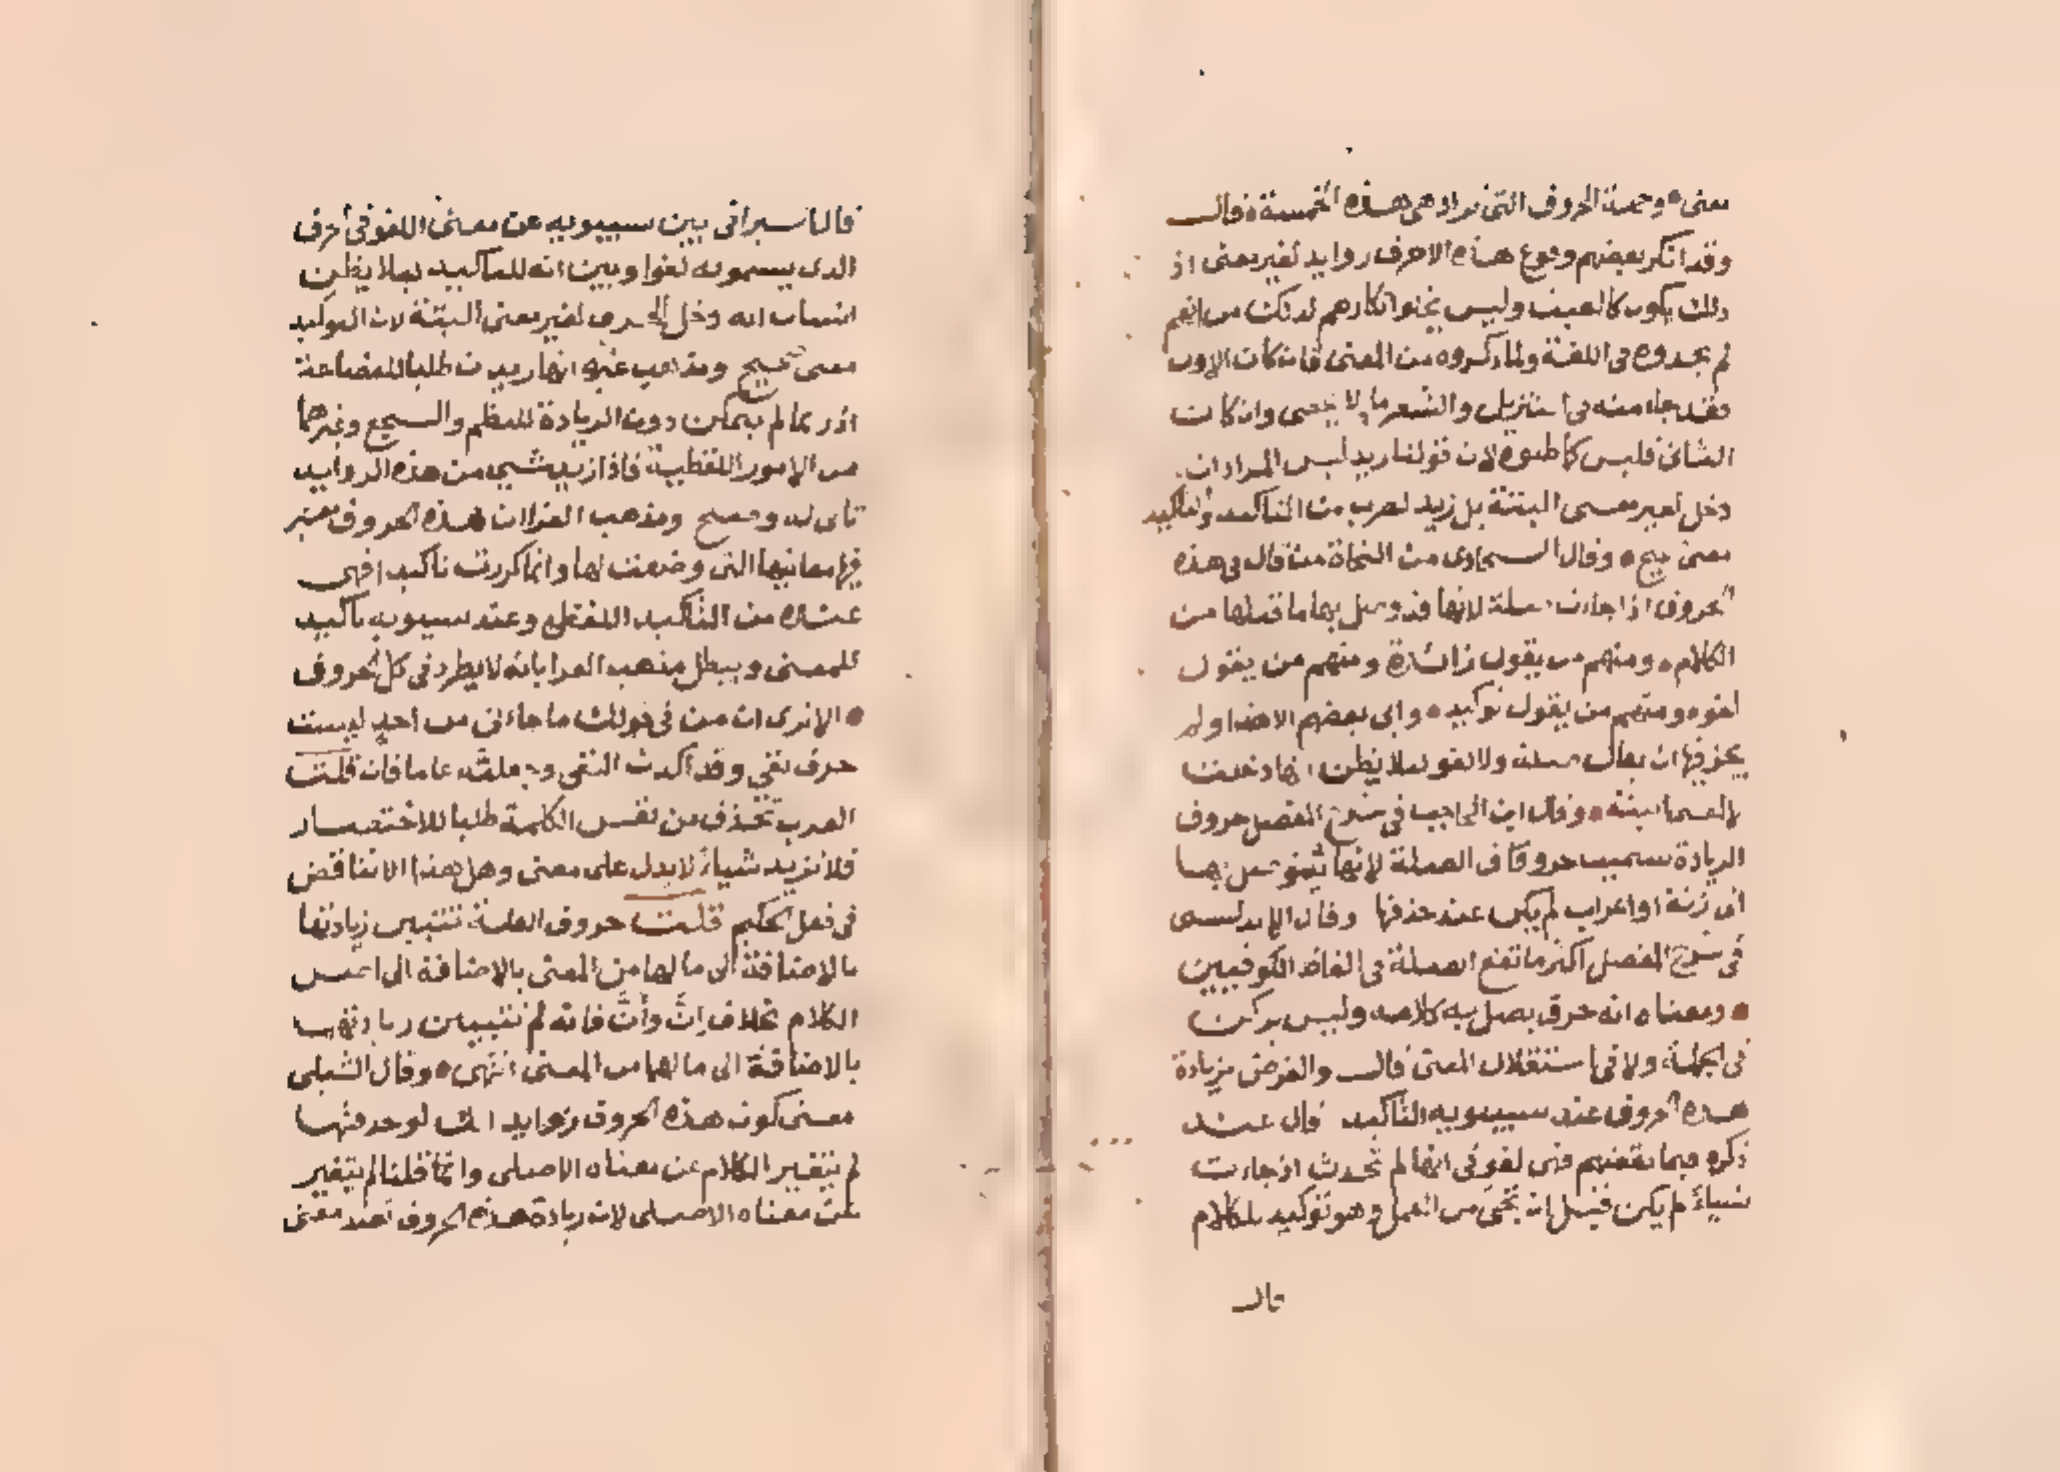 معنى ٥ وجملة الحروف التي تزاد هي هذه الخمسة ٥ قال
وقد انكر بعضهم وقوع هذه الاحرف زوايد لغير معنى اذ
ذلك يكون كالعبث وليس يخلو انكارهم لذلك من انهم
لم يجدوه في اللغة ولما ذكروه من المعنى فان كان الاول
فقد جاء منه في التنزيل والشعر ما لا يحصى وان كان
الثاني فليس كما ظنوه لان قولنا زيد ليس المراد انه
دخل لغير معنى البتة بل زيد لضرب من التاكيد والتاكيد
معنى صحيح ٥ وقال السخاوي من النحاة من قال في هذه
الحروف اذا جاءت صلة لانها قد وصل بها ما قبلها من
الكلام ٥ ومنهم من يقول زائدة ومنهم من يقول
لغو ٥ ومنهم من يقول توكيد ٥ وابى بعضهم الا هذا ولم
يجز فيها ان يقال صلة ولا لغو ليلا يظن انها دخلت
لا لمعنى البتة ٥ وقال ابن الحاجب في شرح المفصل حروف
الزيادة سميت حروف الصلة لانها يتوصل بها
الى زنة او اعراب لم يكن عند حذفها وقال الاندلسي
في شرح المفصل اكثر ما تقع الصلة في الفاظ الكوفيين
٥ ومعناه انه حرف يصل به كلامه وليس بركن
في الجملة ولا في استقلال المعنى قال والغرض بزيادة
هذه الحروف عند سيبويه التاكيد قال عند
ذكره فبما نقضهم فهي لغو في انها لم تحدث اذ جاءت
شياء لم يكن قبل ان تجي من العمل وهو توكيد للكلام
قال
قال السيرافي بين سيبويه عن معنى اللغو في الحرف
الذي يسمونه لغوا وبين انه للتاكيد ليلا يظن
انسان انه دخل الحرف لغير معنى البتة لان التوكيد
معنى صحيح ومذهب غيره انها زيدت طلبا للفصاحة
اذ ربما لم يتمكن دون الزيادة للنظم والسجع وغيرهما
من الامور اللفظية فاذا زيد شي من هذه الزوايد
تاتى له وصلح ومذهب الفرا ان هذه الحروف معتبر
فيها معانيها التي وضعت لها وانما كررت تاكيدا فهي
عنده من التاكيد اللفظي وعند سيبويه تاكيد
للمعنى ويبطل مذهب الفرا بانه لا يطرد في كل الحروف
٥ الا ترى ان من في قولك ما جاءني من احد ليست
حرف نفي وقد اكدت النفي وجعلته عاما فان قلت
العرب تحذف من نفس الكلمة طلبا للاختصار
فلا تزيد شياء لا يدل على معنى وهل هذا الا تناقض
في فعل الحكيم قلت حروف الصلة تتبين زيادتها
بالاضافة الى ما لها من المعنى بالاضافة الى اصل
الكلام بخلاف إنّ وأنّ فانه لم تتبين زيادتهما
بالاضافة الى ما لهما من المعنى انتهى ٥ وقال الشبلي
معنى كون هذه الحروف زوايد انك لو حذفتها
لم يتغير الكلام عن معناه الاصلي وانما قلنا لم يتغير
عن معناه الاصلي لان زيادة هذه الحروف تفيد معنى